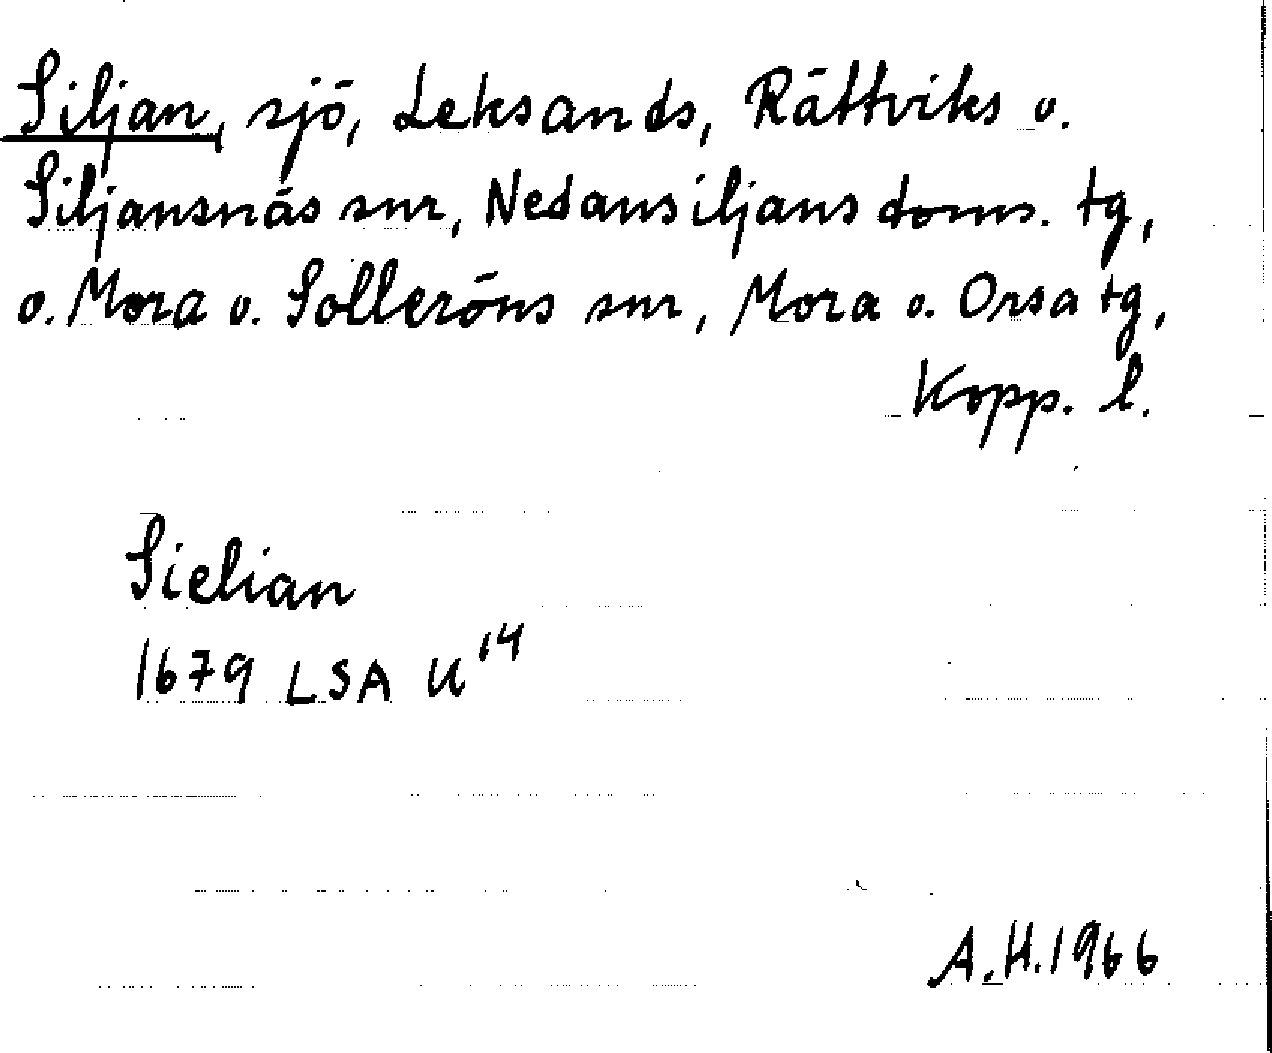 Siljan, sjö, Leksands, Rättviks o.
Siljansnäs snr, Nedansiljans doms. tg,
o. Mora o. Solleröns snr, Mora o. Orsa tg,
Kopp. l.
Sielian
1679 LSA U 14
A.H. 1966